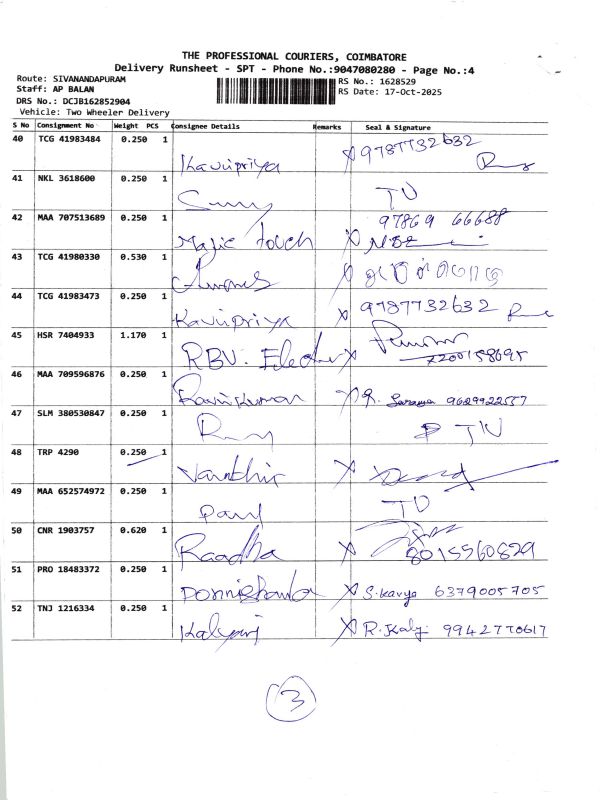 THE PROFESSIONAL COURIERS, COIMBATORE
Delivery Runsheet - SPT - Phone No.:9047080280 - Page No.:4
Route: SIVANANDAPURAM
RS No.: 1628529
Staff: AP BALAN
RS Date: 17-Oct-2025
DRS No.: DCJB162852904
Vehicle: Two Wheeler Delivery
S No Consignment No Weight PCS Consignee Details Remarks Seal & Signature
40 TCG 41983484 0.250 1 Kavipriya 9787732632
41 NKL 3618600 0.250 1
42 MAA 707513689 0.250 1 Magic touch 97869 66688
43 TCG 41980330 0.530 1
44 TCG 41983473 0.250 1 Kavipriya 9787732632
45 HSR 7404933 1.170 1 RBV. 7200158695
46 MAA 709596876 0.250 1 Ravikumar 9629922557
47 SLM 380530847 0.250 1
48 TRP 4290 0.250 1
49 MAA 652574972 0.250 1 Paul
50 CNR 1903757 0.620 1 Raadha 8015560829
51 PRO 18483372 0.250 1 S. Kavya 6379005705
52 TNJ 1216334 0.250 1 Kalyani R. Kaly 9942770617
3